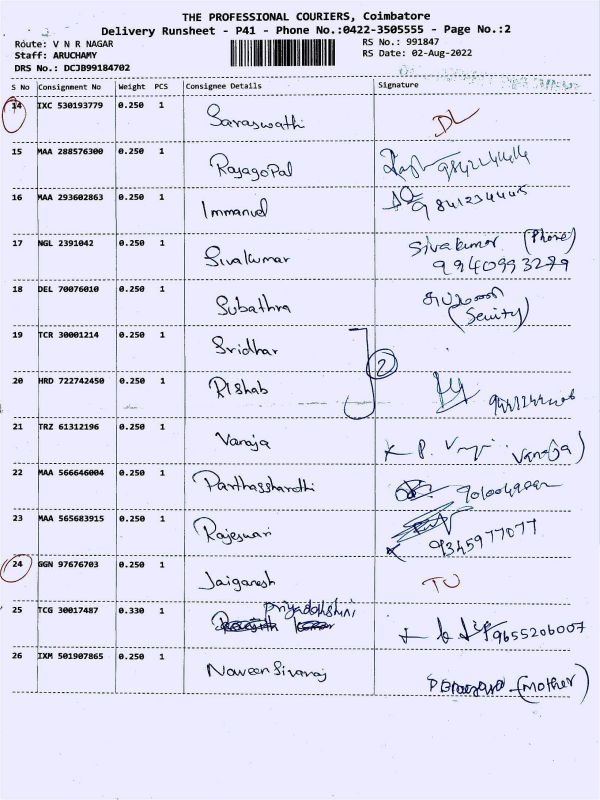 THE PROFESSIONAL COURIERS, Coimbatore
Delivery Runsheet - P41 - Phone No.:0422-3505555 - Page No.:2
Route: V N R NAGAR
RS No.: 991847
Staff: ARUCHAMY
RS Date: 02-Aug-2022
DRS No.: DCJB99184702
S No Consignment No Weight PCS Consignee Details Signature
14 IXC 530193779 0.250 1 Saraswathi DL
15 MAA 288576300 0.250 1 Rajagopal
16 MAA 293602863 0.250 1 Immanuel 9841234445
17 NGL 2391042 0.250 1 Sivakumar Sivakumar (Phone)
9940993279
18 DEL 70076010 0.250 1 Subathra
19 TCR 30001214 0.250 1 Sridhar
2
20 HRD 722742450 0.250 1 Rishab
21 TRZ 61312196 0.250 1 Vanaja P. Vanaja)
22 MAA 566646004 0.250 1 Parthassharathi
23 MAA 565683915 0.250 1 Rajeswari 9345977077
24 GGN 97676703 0.250 1 Jaiganesh TU
25 TCG 30017487 0.330 1 Priyadarshini 9655206007
26 IXM 501907865 0.250 1 Naveen Sivaraj (mother)